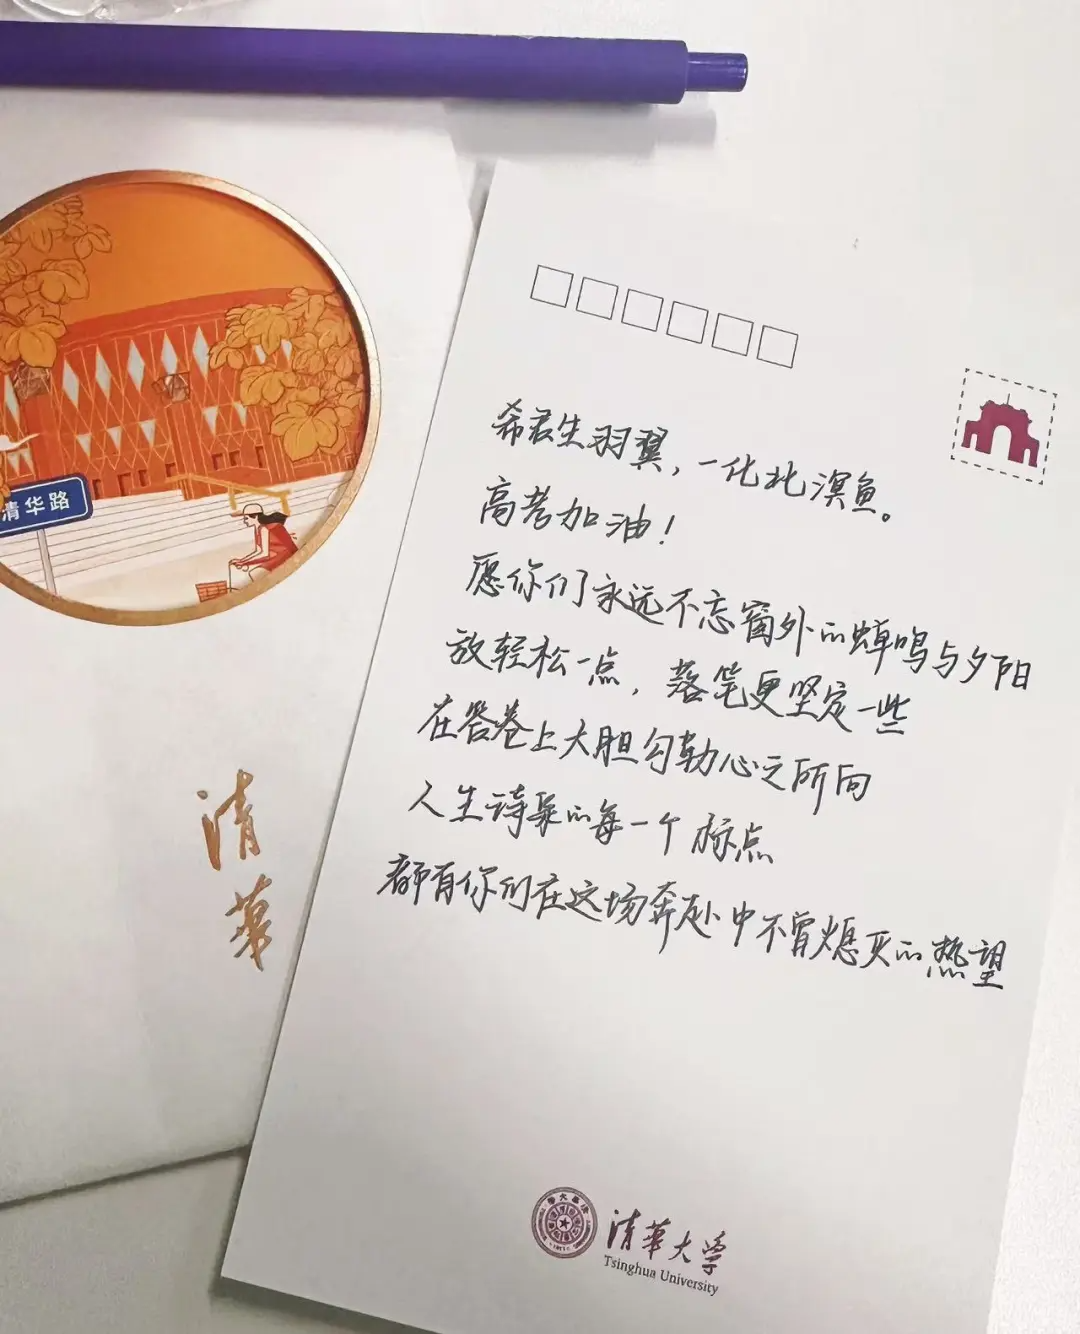 清华路
清
华
希君生羽翼，一化北溟鱼。
高考加油！
愿你们永远不忘窗外的蝉鸣与夕阳
放轻松一点，落笔更坚定一些
在答卷上大胆勾勒心之所向
人生诗集的每一个标点
都有你们在这场奔赴中不曾熄灭的热望
清華大学
Tsinghua University